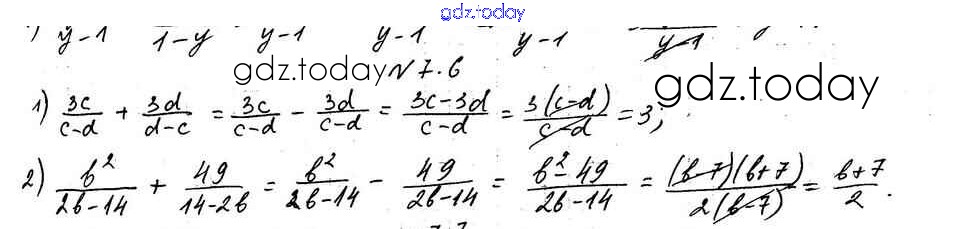 gdz.today
y-1 1-y y-1 y-1 y-1 y-1
gdz.today № 7.6
1) 3c/(c-d) + 3d/(d-c) = 3c/(c-d) - 3d/(c-d) = (3c-3d)/(c-d) = 3(c-d)/(c-d) = 3; gdz.today
2) b²/(2b-14) + 49/(14-2b) = b²/(2b-14) - 49/(2b-14) = (b²-49)/(2b-14) = (b-7)(b+7)/(2(b-7)) = (b+7)/2.